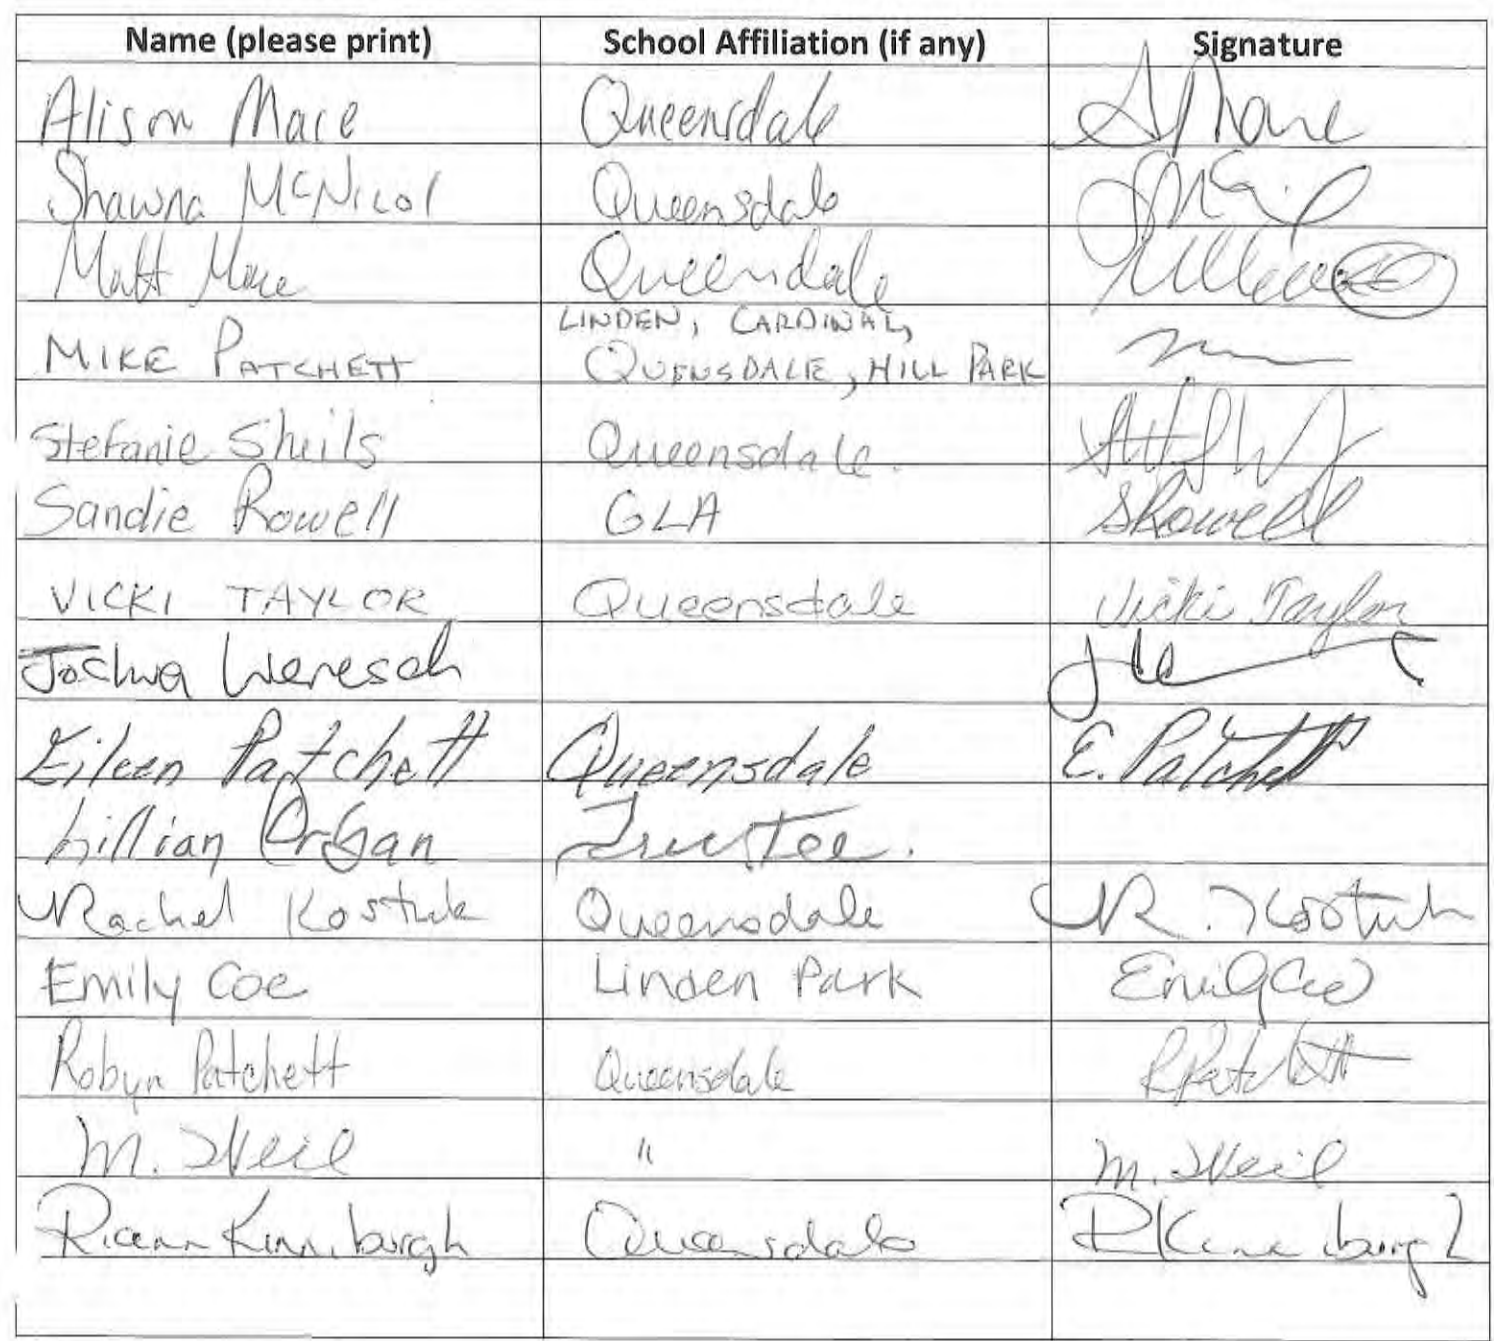 Name (please print) School Affiliation (if any) Signature
Alison Mace Queensdale A Mace
Shawna McNicol Queensdale
Matt Mace Queensdale
LINDEN, CARDINAL,
MIKE PATCHETT QUEENSDALE, HILL PARK
Stefanie Sheils Queensdale.
Sandie Rowell GLA SRowell
VICKI TAYLOR Queensdale Vicki Taylor
Joshua Weresch
Eileen Patchett Queensdale E. Patchett
Lillian Orban Trustee.
Rachel Kostuk Queensdale R. Kostuk
Emily Coe Linden Park Emily Coe
Robyn Patchett Queensdale RPatchett
M. " M.
Riann Kinniburgh Queensdale RKinniburgh